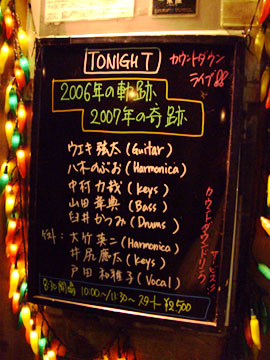 TONIGHT
カウントダウン
ライブ
2006年の軌跡
2007年の奇跡
ウエキ弦太 (Guitar)
八木のぶお (Harmonica)
中村力哉 (Keys)
山田章典 (Bass)
臼井かつみ (Drums)
ゲスト: 大竹英二 (Harmonica)
井尻慶太 (Keys)
戸田和雅子 (Vocal)
カウントダウンドリンク
サービス
8:30開場 10:00〜/11:30〜スタート ¥2,500